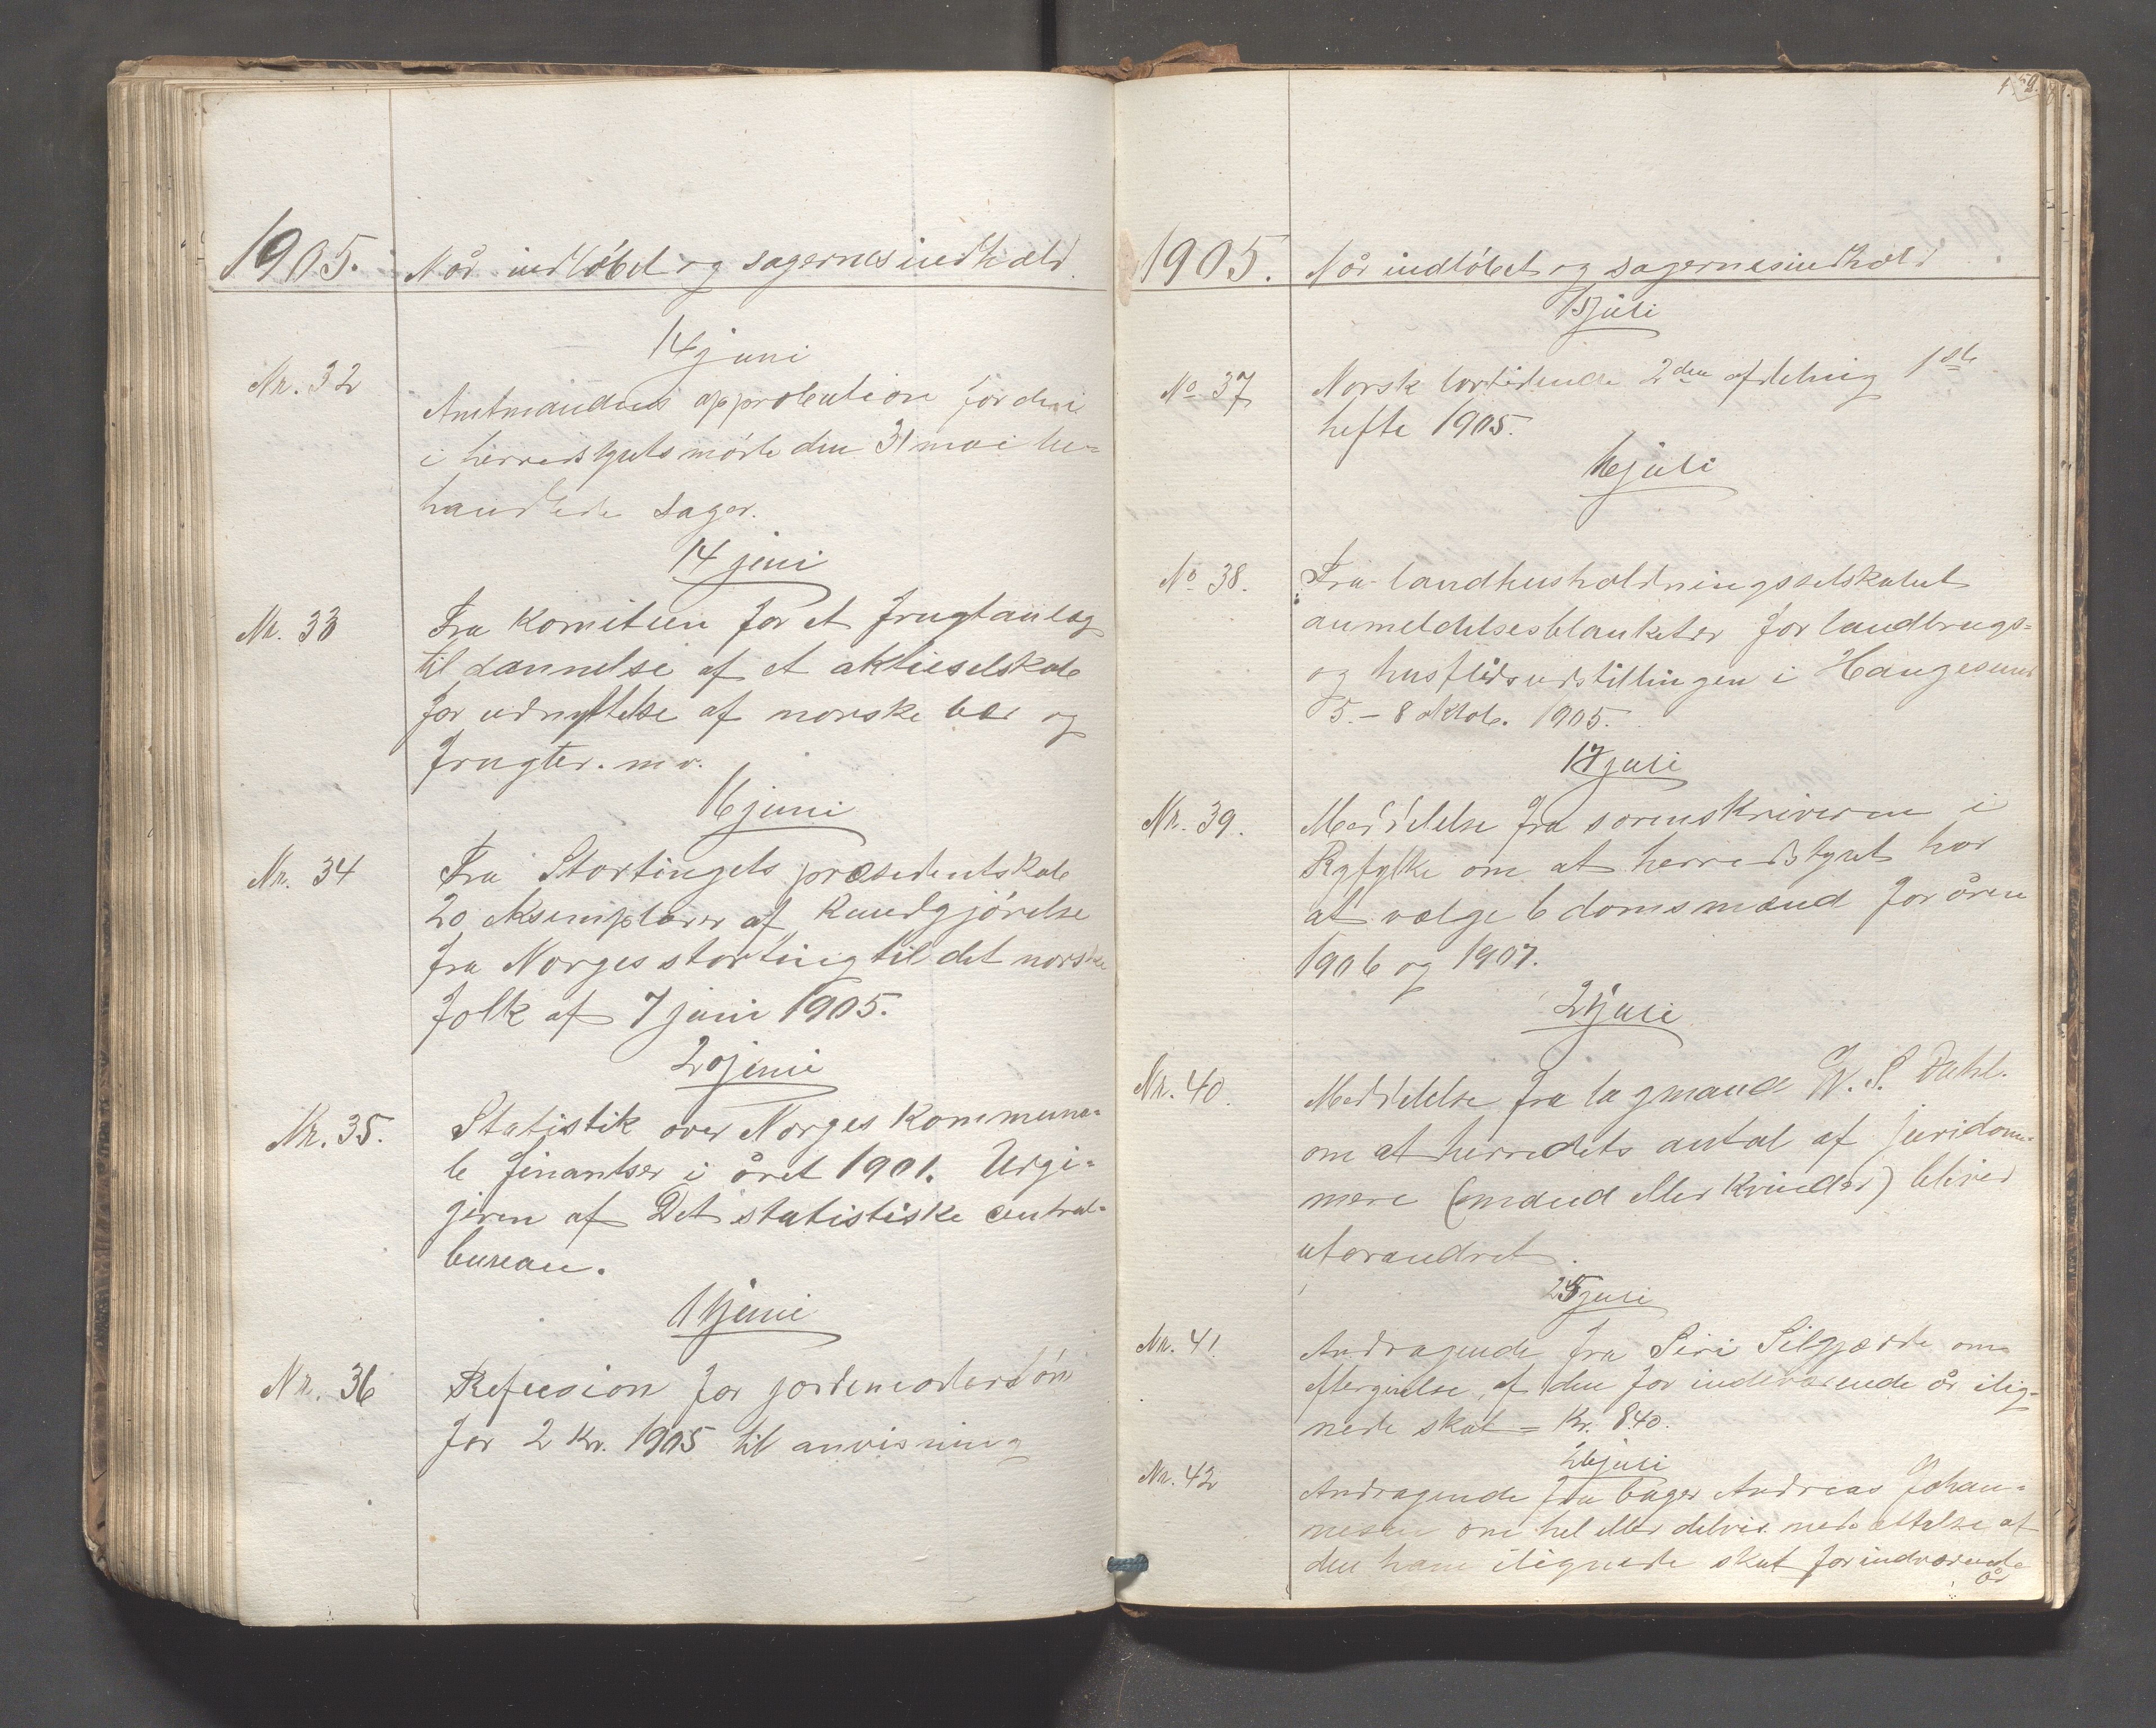 1905.
Når indløbet og sagernes indhold.
14 juni
Nr. 32
Amtmandens approbation for de i
i herredstyrets møde den 31 mai be-
handlede sager.
14 juni
Nr. 33
Fra komiteen for et frugtanlæg
til dannelse af et aktieselskab
for udnyttelse af norske bær og
frugter. m v.
16 juni
Nr. 34
Fra Stortingets præsidentskab
20 eksemplarer af kundgjørelse
fra Norges storting til det norske
folk af 7 juni 1905.
20 juni
Nr. 35.
Statistik over Norges kommuna-
le finantser i året 1901. Udgi-
given af Det statistiske central-
bureau.
juni
Nr. 36
Refusion for jordemoderløn
for 2 kv. 1905 til anvisning
1905.
Når indløbet og sagernes indhold
juli
No 37
Norsk lovtidende 2den afdeling 1ste
hefte 1905.
16 juli
No 38.
Fra landhusholdningsselskabet
anmeldelsesblanketer for landbrugs-
og husflidsudstillingen i Haugesund
5.-8 oktob. 1905.
17 juli
Nr. 39.
Meddelelse fra sorenskriveren i
Ryfylke om at herredstyret har
at vælge 6 domsmænd for åren
1906 og 1907.
juli
Nr. 40.
Meddelelse fra lagmand W. S. Dahl.
om at herredets antal af juridom-
mere (mænd eller kvinder) bliver
uforandret.
25 juli
Nr. 41
Andragende fra Siri Silgjerde om
eftergivelse af den for indeværende år ilig-
nede skat = Kr. 8.40.
26 juli
Nr. 42
Andragende fra bager Andreas Johan-
nesen om hel eller delvis nedsættelse af
den ham ilignede skat for indværende
år